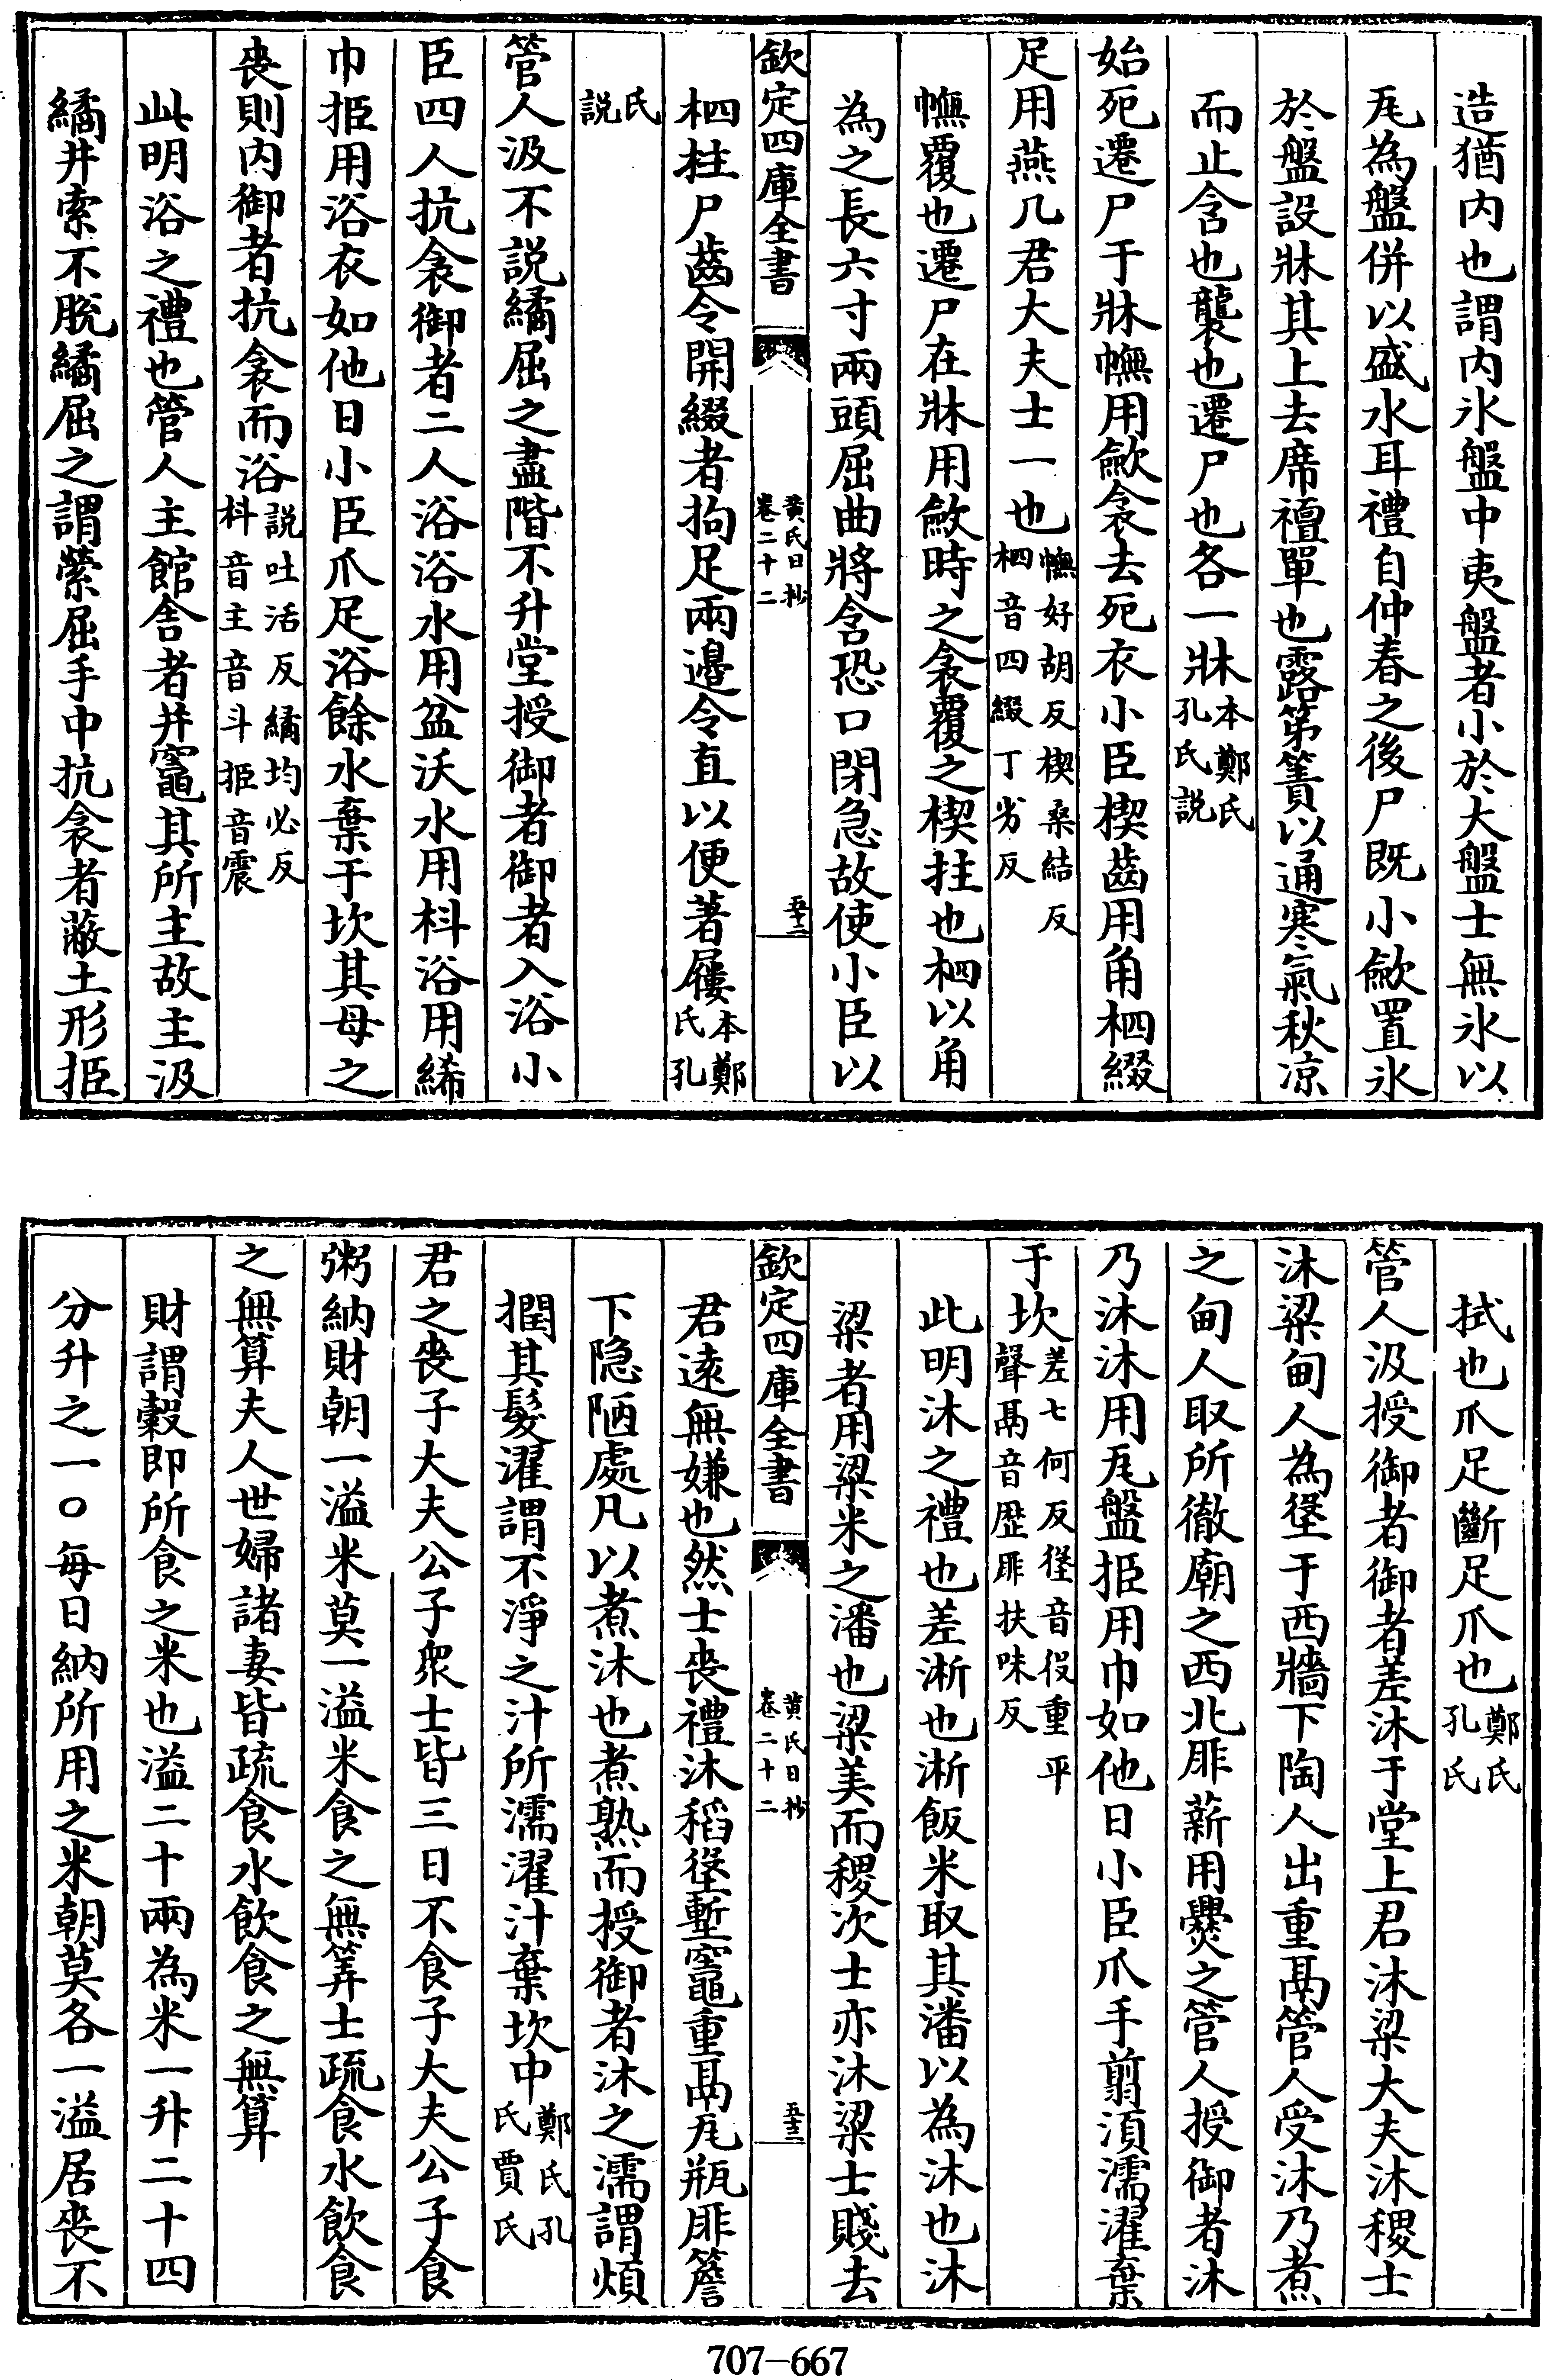 造猶内也謂内氷盤中夷盤者小於大盤士無氷以
瓦為盤併以盛水耳禮自仲春之後尸既小歛置氷
於盤設牀其上去席襢單也露笫簀以通寒氣秋凉
而止含也襲也遷尸也各一牀本鄭氏孔氏説
始死遷尸于牀幠用歛衾去死衣小臣楔齒用角柶綴
足用燕几君大夫士一也幠好胡反楔桑結反柶音四綴丁劣反
幠覆也遷尸在牀用歛時之衾覆之楔拄也柶以角
為之長六寸兩頭屈曲將含恐口閉急故使小臣以
欽定四庫全書 黄氏日抄卷二十二 五十二
柶柱尸齒令開綴者拘足兩邉令直以便著屨本鄭氏孔
氏説
管人汲不説繘屈之盡階不升堂授御者御者入浴小
臣四人抗衾御者二人浴浴水用盆沃水用枓浴用絺
巾挋用浴衣如他日小臣爪足浴餘水棄于坎其母之
喪則内御者抗衾而浴説吐活反繘均必反枓音主音斗挋音震
此明浴之禮也管人主館舎者井竈其所主故主汲
繘井索不脱繘屈之謂縈屈手中抗衾者蔽土形挋
拭也爪足斷足爪也鄭氏孔氏
管人汲授御者御者差沐于堂上君沐粱大夫沐稷士
沐粱甸人為垼于西牆下陶人出重鬲管人受沐乃煮
之甸人取所徹廟之西北厞薪用爨之管人授御者沐
乃沐沐用瓦盤挋用巾如他日小臣爪手翦湏濡濯棄
于坎差七何反垼音役重平聲鬲音歴厞扶味反
此明沐之禮也差淅也淅飯米取其潘以為沐也沐
粱者用粱米之潘也粱美而稷次士亦沐粱士賤去
欽定四庫全書 黄氏日抄卷二十二 五十三
君逺無嫌也然士喪禮沐稻垼塹竈重鬲瓦瓶厞簷
下隐陋處凡以煮沐也煮熟而授御者沐之濡謂煩
撋其髮濯謂不淨之汁所濡濯汁棄坎中鄭氏孔氏賈氏
君之喪子大夫公子衆士皆三日不食子大夫公子食
粥納財朝一溢米莫一溢米食之無筭士疏食水飲食
之無算夫人世婦諸妻皆疏食水飲食之無算
財謂榖即所食之米也溢二十兩為米一升二十四
分升之一○每日納所用之米朝莫各一溢居喪不
707-667